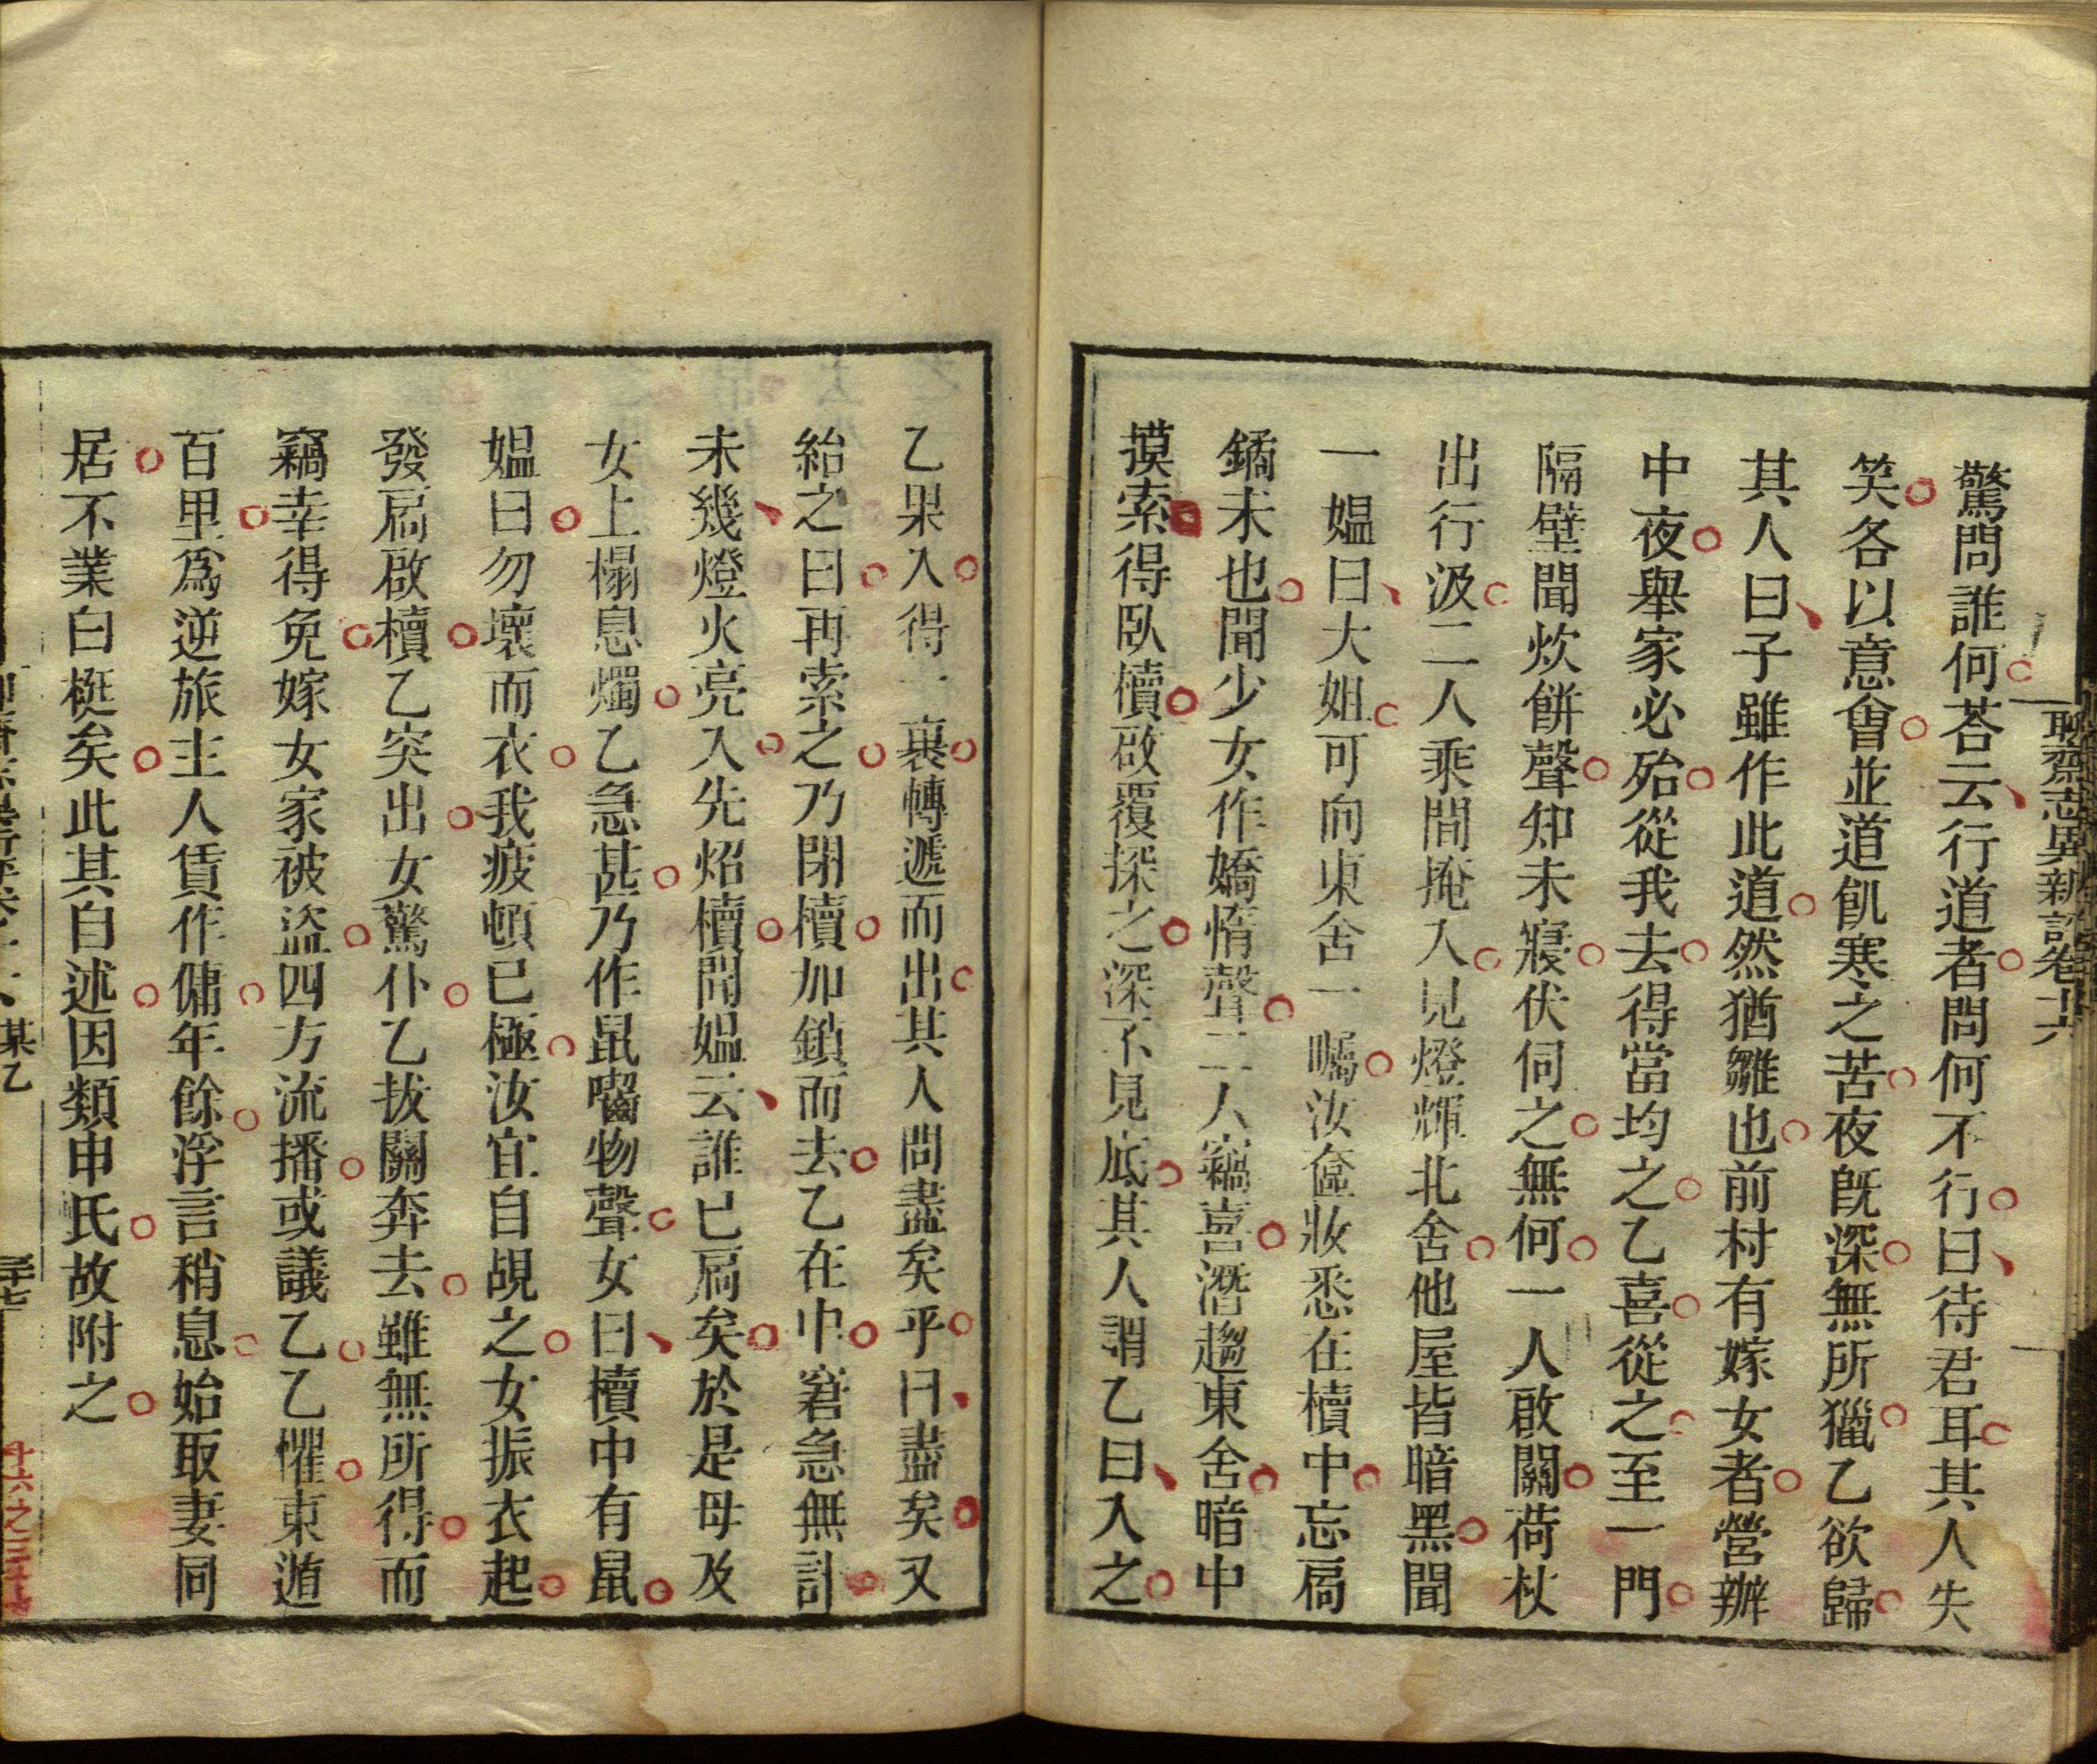 聊齋志異新評卷十六
驚問誰何荅云行道者問何不行曰待君耳其人失
笑各以意會並道飢寒之苦夜旣深無所獵乙欲歸
其人曰子雖作此道然猶雛也前村有嫁女者營辦
中夜舉家必殆從我去得當均之乙喜從之至一門
隔壁聞炊餅聲知未寢伏伺之無何一人啟關荷杖
出行汲二人乘間掩入見燈輝北舍他屋皆暗黑聞
一媼曰大姐可向東舍一矚汝奩妝悉在櫝中忘扃
鐍未也聞少女作嬌惰聲二人竊喜潛趨東舍暗中
摸索得臥櫝啟覆探之深不見底其人謂乙曰入之
乙果入得一裹轉遞而出其人問盡矣乎曰盡矣又
紿之曰再索之乃閉櫝加鎖而去乙在中窘急無計
未幾燈火亮入先炤櫝聞媼云誰已扃矣於是母及
女上榻息燭乙急甚乃作鼠嚙物聲女曰櫝中有鼠
媼曰勿壞而衣我疲頓已極汝宜自覘之女振衣起
發扃啟櫝乙突出女驚仆乙拔關奔去雖無所得而
竊幸得免嫁女家被盜四方流播或議乙乙懼東遁
百里爲逆旅主人賃作傭年餘浮言稍息始取妻同
居不業白梃矣此其自述因類申氏故附之
某乙
十六之三十七